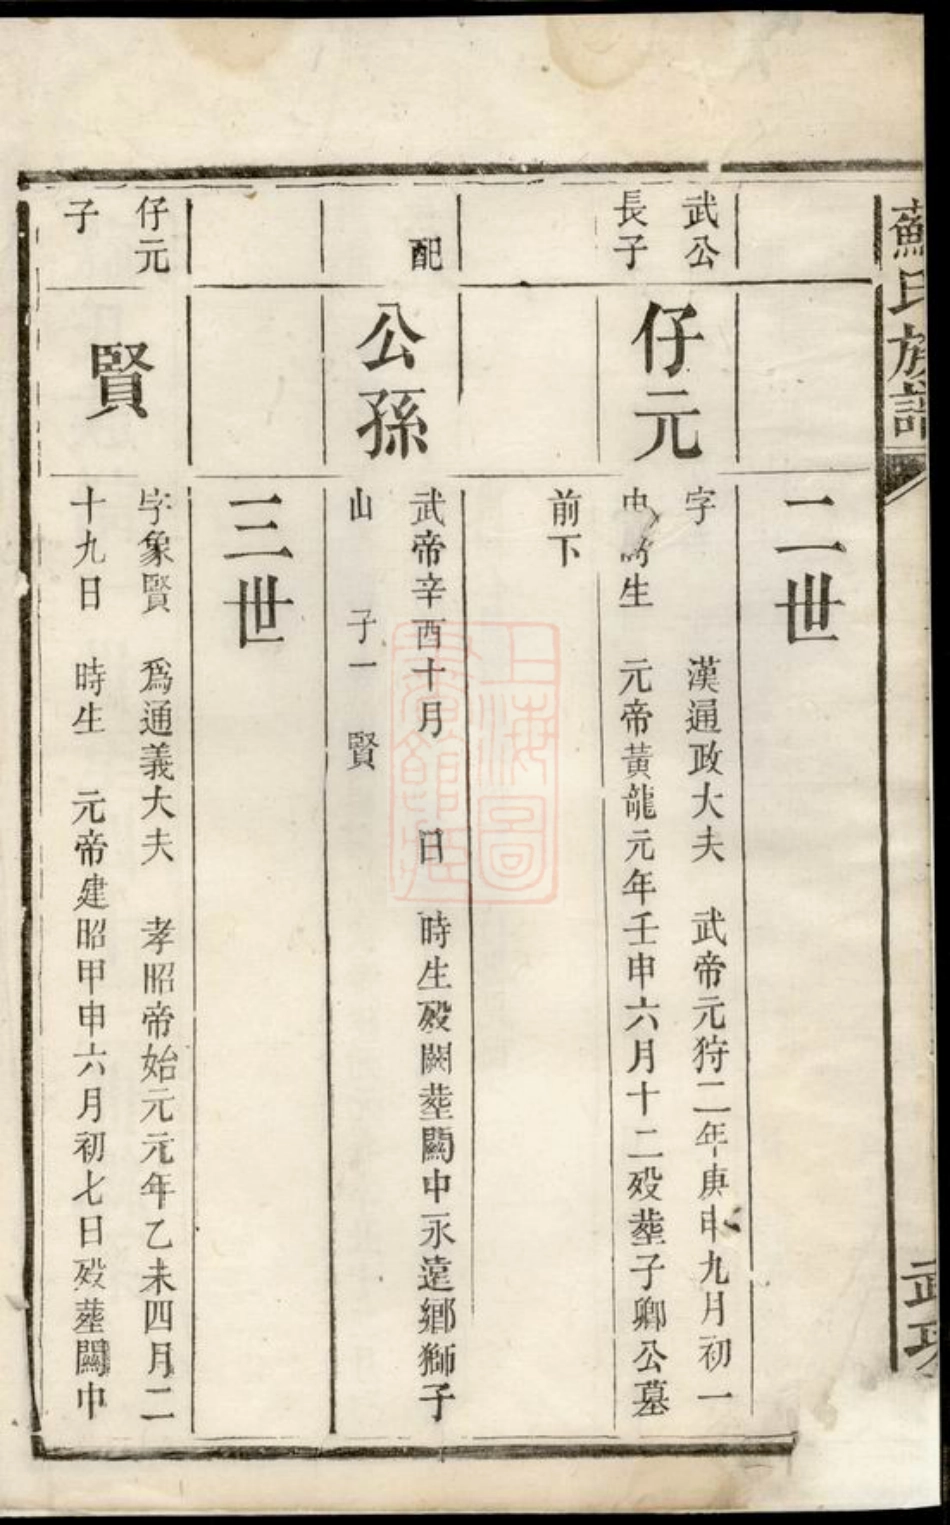 蘇氏族譜
武功
二世
武公
長子
仔元
字 漢通政大夫 武帝元狩二年庚申九月初一
時生 元帝黃龍元年壬申六月十二歿塟子卿公墓
前下
配
公孫
武帝辛酉十月 日 時生歿闕塟關中永遠鄉獅子
山 子一 賢
三世
仔元
子
賢
字象賢 為通義大夫 孝昭帝始元元年乙未四月二
十九日 時生 元帝建昭甲申六月初七日歿塟關中
上海圖
書館藏